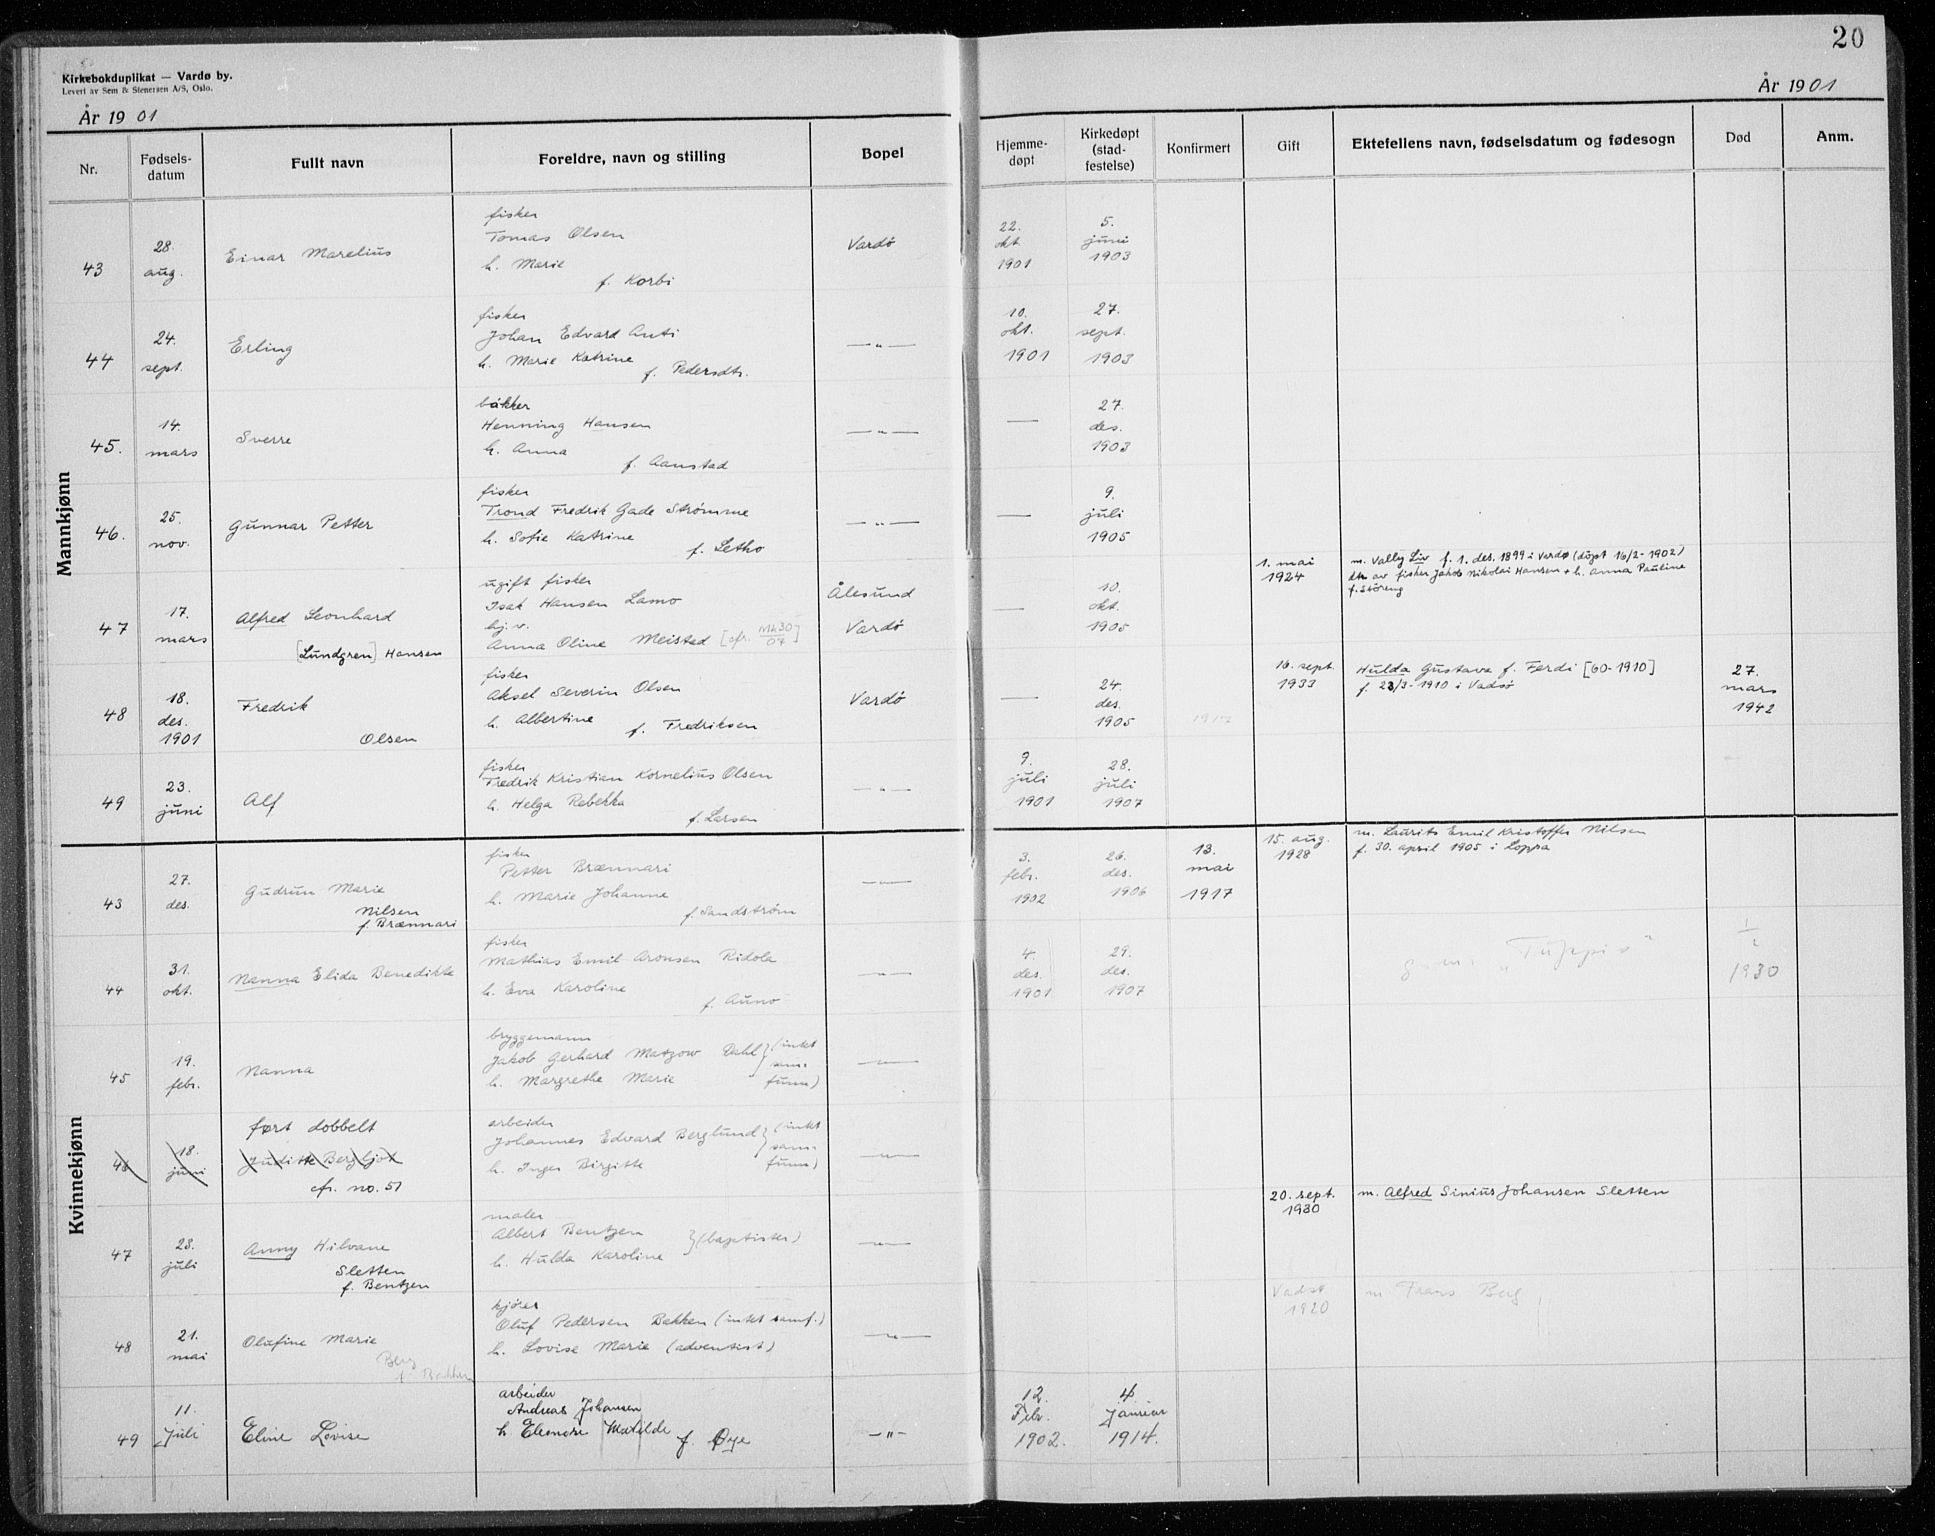 20
Kirkebokduplikat — Vardø by.
Levert av Sem & Stenersen A/S, Oslo.
År 1901
År 1901
Nr.
Fødsels-
datum
Fullt navn
Foreldre, navn og stilling
Bopel
Hjemme-
døpt
Kirkedøpt
(stad-
festelse)
Konfirmert
Gift
Ektefellens navn, fødselsdatum og fødesogn
Død
Anm.
Mannkjønn
43
28.
aug.
Einar Marelius
fisker
Tomas Olsen
h. Marie
f. Korbi
Vardø
22.
okt
1901
5.
juni
1903
44
24.
sept.
Erling
fisker
Johan Edvard Anti
h. Marie Katrine
f. Pedersdtr.
— " —
10.
okt.
1901
27.
sept.
1903
45.
14.
mars
Sverre
bakker
Henning Hansen
h. Anna
f. Aanstad
— " —
—
27.
des.
1903
46.
25.
nov.
Gunnar Petter
fisker
Trond Fredrik Gade Strømme
h. Sofie Katrine
f. Letho
— " —
—
9.
juli
1905
47
17.
mars
Alfred Leonhard
[Lundgren] Hansen
ugift fisker
Isak Hansen Lamo
hj. v.
Anna Oline Meistad [cfr. Mk 30/07]
Ålesund
Vardø
—
10.
okt.
1905
1. mai
1924
m. Vally Liv f. 1. des. 1899 i Vardø (døpt 16/2-1902)
dtr. av fisker Jakob Nikolai Hansen + h. Anna Pauline
f. Störeng
48
18.
des.
1901
Fredrik
Olsen
fisker
Aksel Severin Olsen
h. Albertine
f. Fredriksen
Vardø
—
24.
des.
1905
16. sept
1933
Hulda Gustava f. Ferdi [60-1910]
f. 23/3-1910 i Vadsö
27.
mars
1942
49
23.
juni
Alf
fisker
Fredrik Kristian Kornelius Olsen
h. Helga Rebekka
f. Larsen
— " —
9.
juli
1901
28.
juli
1907
Kvinnekjønn
43
27.
des.
Gudrun Marie
Nilsen
f. Brænnari
fisker
Petter Brænnari
h. Marie Johanne
f. Sandstrøm
— " —
3.
febr.
1902
26.
des.
1906
13.
mai
1917
15. aug.
1928
m. Laurits Emil Kristoffer Nilsen
f. 30. april 1905 i Loppa
44
31.
okt.
Nanna Elida Benedikte
fisker
Mathias Emil Aronsen Ridola
h. Eva Karoline
f. Auno
— " —
4.
des.
1901
29.
des.
1907
"Tuppis"
1930
45
19.
febr.
Nanna
bryggemann
Jakob Gerhard Matzow Dahl
h. Margrethe Marie
(intet
sam-
funn)
— " —
46
18.
juni
ført dobbelt
Judith Bergljot
cfr. no. 51
arbeider
Johannes Edvard Berglund
h. Inger Birgitte
(intet
sam-
funn)
— " —
47
23.
juli
Anny Hilvane
Sletten
f. Bentzen
maler
Albert Bentzen
h. Hulda Karoline
(baptister)
— " —
20. sept.
1930
m. Alfred Sinius Johansen Sletten
48
21.
mai
Olufine Marie
Berg
f. Bakken
kjører
Oluf Pedersen Bakken (intet samf.)
h. Lovise Marie (adventist)
— " —
Vadsö
1920
m Frans Berg
49
11.
Juli
Eline Lovise
arbeider
Andreas Johansen
h Eleonore Matilde f. Øye
— " —
12.
Febr.
1902.
4.
Januar
1914.